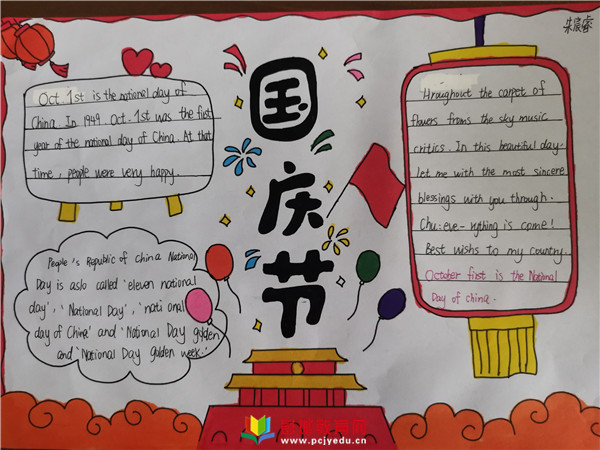 朱宸睿
Oct. 1st is the national day of
China. In 1949. Oct. 1st was the first
year of the national day of China. At that
time, people were very happy.
国
庆
节
Hroughout the carpet of
flowers from the sky music
critics. In this beautiful day.
let me with the most sincere
blessings with you through.
Chu-eye-nything is come!
Best wishs to my country.
October first is the National
Day of china.
People's Republic of china National
Day is aslo called 'eleven national
day', 'National Day', 'national
day of China' and 'National Day golden
and 'National Day golden week.'
www.pcjyedu.cn